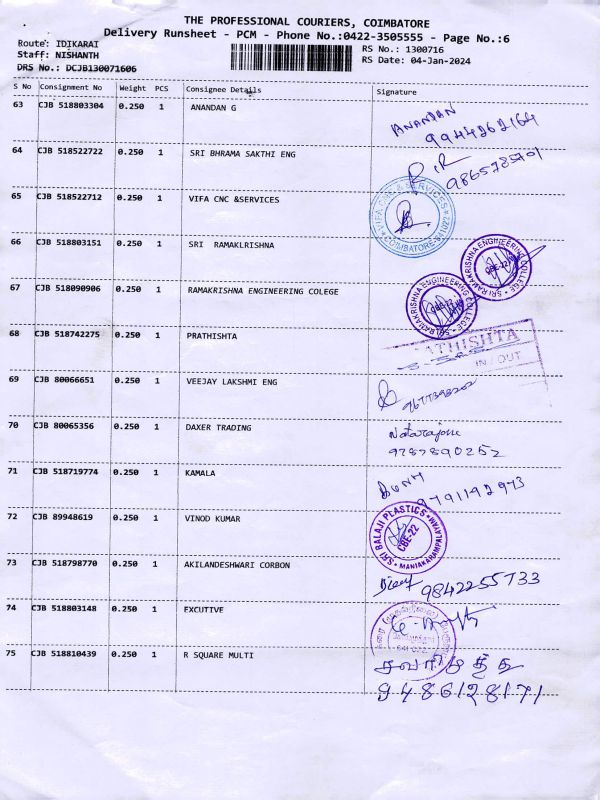 THE PROFESSIONAL COURIERS, COIMBATORE
Delivery Runsheet - PCM - Phone No.:0422-3505555 - Page No.:6
Route: IDIKARAI
Staff: NISHANTH
DRS No.: DCJB130071606
RS No.: 1300716
RS Date: 04-Jan-2024
S No Consignment No Weight PCS Consignee Details Signature
63 CJB 518803304 0.250 1 ANANDAN G
ANANDAN
9944262164
64 CJB 518522722 0.250 1 SRI BHRAMA SAKTHI ENG
65 CJB 518522712 0.250 1 VIFA CNC &SERVICES
VIFA CNC & SERVICES
COIMBATORE-641022
66 CJB 518803151 0.250 1 SRI RAMAKLRISHNA
SRI RAMAKRISHNA ENGINEERING COLLEGE
CBE-22
67 CJB 518090906 0.250 1 RAMAKRISHNA ENGINEERING COLEGE
SRI RAMAKRISHNA ENGINEERING COLLEGE
68 CJB 518742275 0.250 1 PRATHISHTA
ATHISHTA
IN / OUT
69 CJB 80066651 0.250 1 VEEJAY LAKSHMI ENG
70 CJB 80065356 0.250 1 DAXER TRADING
9787890252
71 CJB 518719774 0.250 1 KAMALA
9791192973
72 CJB 89948619 0.250 1 VINOD KUMAR
SRI BALAJI PLASTICS
CBE-22
MANIAKARAMPALAYAM
73 CJB 518798770 0.250 1 AKILANDESHWARI CORBON
9842255733
74 CJB 518803148 0.250 1 EXCUTIVE
75 CJB 518810439 0.250 1 R SQUARE MULTI
9486128171